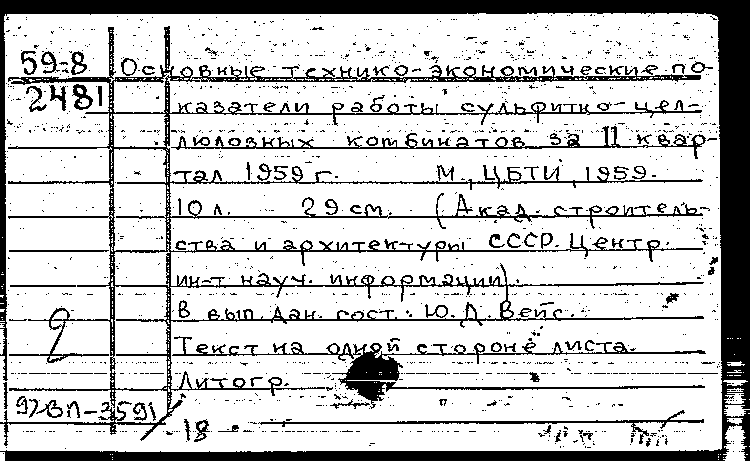 59-8
2481
Основные технико-экономические по-
казатели работы сульфитно-цел-
люлозных комбинатов за II квар-
тал 1959 г. М., ЦБТИ, 1959.
10 л. 29 см. (Акад. строитель-
ства и архитектуры СССР. Центр.
ин-т науч. информации).
В вып. дан. сост.: Ю. Д. Вейс.
Текст на одной стороне листа.
Литогр.
2
92-ВЛ-3591
-18